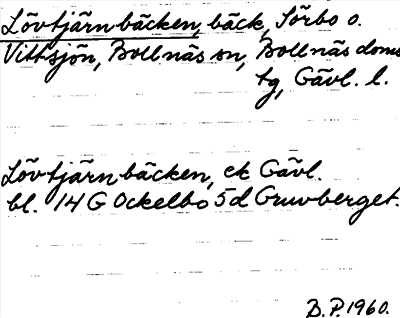 Lövtjärnbäcken, bäck, Sörbo o.
Vittsjön, Bollnäs sn, Bollnäs doms
tg, Gävl. l.
Lövtjärnbäcken, ek Gävl.
bl. 14 G Ockelbo 5d Gruvberget.
B.P. 1960.